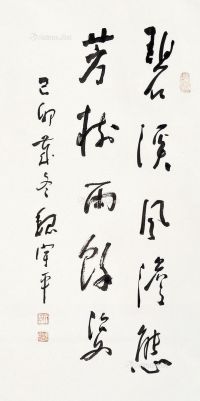 碧溪风澹态
芳树雨馀姿
己卯岁冬魏宇平